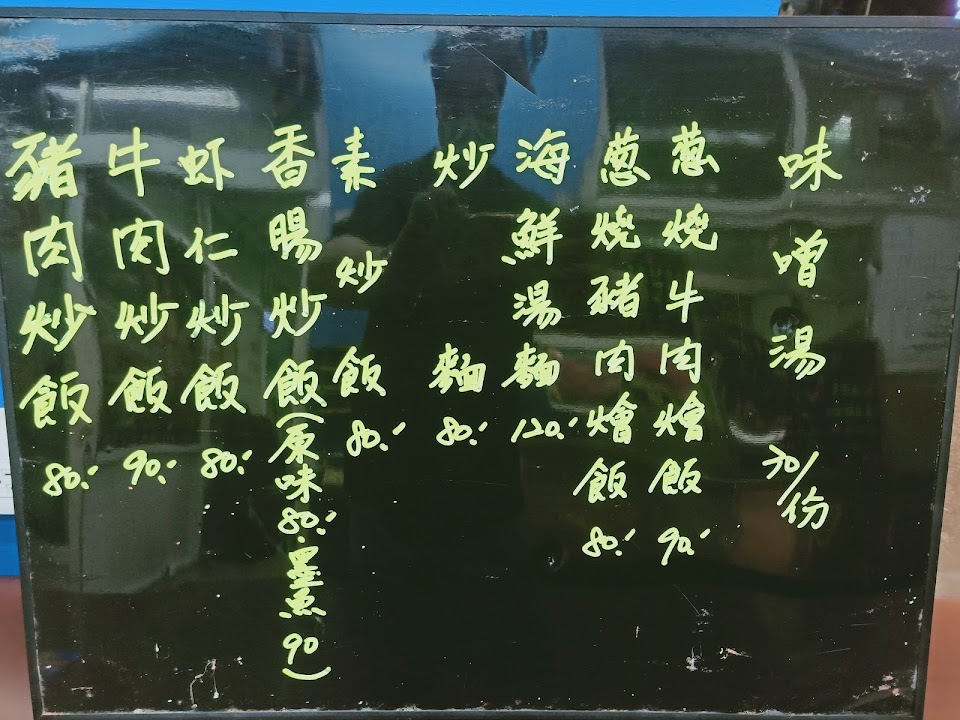 味噌湯 30/份
葱燒牛肉燴飯 90.-
葱燒豬肉燴飯 80.-
海鮮湯麵 120.-
炒麵 80.-
素炒飯 80.-
香腸炒飯(原味80.-墨魚90)
虾仁炒飯 80.-
牛肉炒飯 90.-
豬肉炒飯 80.-